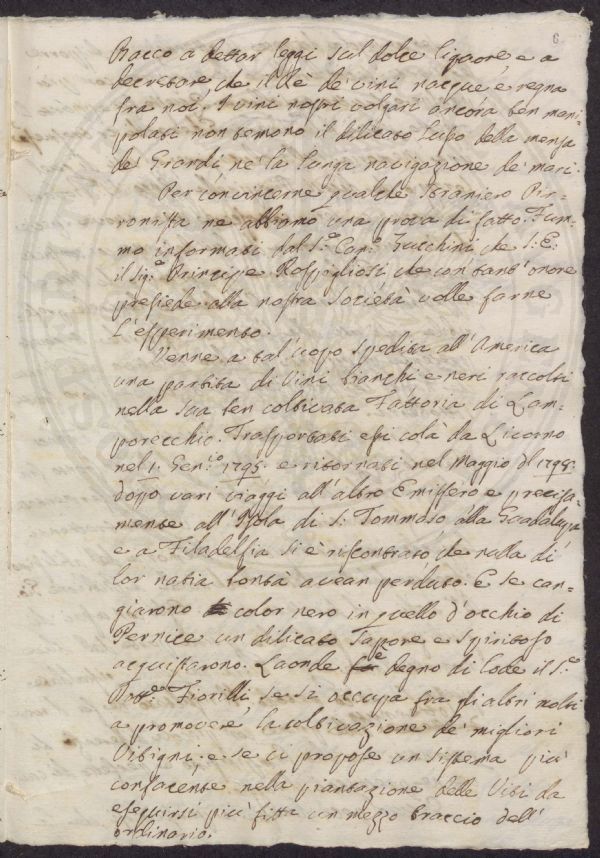 6
Bacco a dettar leggi sul dolce liquore, e a
decretare che il Rè de' vini nacque, e regna
fra noi. I vini nostri volgari ancora ben mani-
polati non temono il dilicato lusso della mensa
de' Grandi, nè la lunga navigazione de' mari.
Per convincerne qualche straniero Pir-
ronista ne abbiamo una prova di fatto. Fum-
mo informati dal S.r Can.o Zucchini che S: E:
il Sig.e Principe Rospigliosi che con tant' onore
presiede alla nostra Società volle farne
l'esperimento.
Venne a tal' uopo spedita all'America
una partita di Vini bianchi e neri raccolti
nella sua ben coltivata Fattoria di Lam-
porecchio. Trasportati essi colà da Livorno
nel 1. Gen.o 1795. e ritornati nel Maggio dl 1798.
doppo varj viaggi all'altro Emisfero e precisa-
mente all'Isola di S: Tommaso alla Guadalupa
e a Filadelfia si è riscontrato che nulla di
lor natia bontà avean perduto. E se can-
giarono color nero in quello d'occhio di
Pernice un dilicato sappore e spiritoso
acquistarono. Laonde è degno di lode il S.r
Fiorilli, se si occupa fra gli altri molti
a promovere la coltivazione de' migliori
Vitigni, e se ci propose un sistema più
confacente nella piantazione delle Viti da
eseguirsi più fitta un mezzo braccio dell'
ordinario.